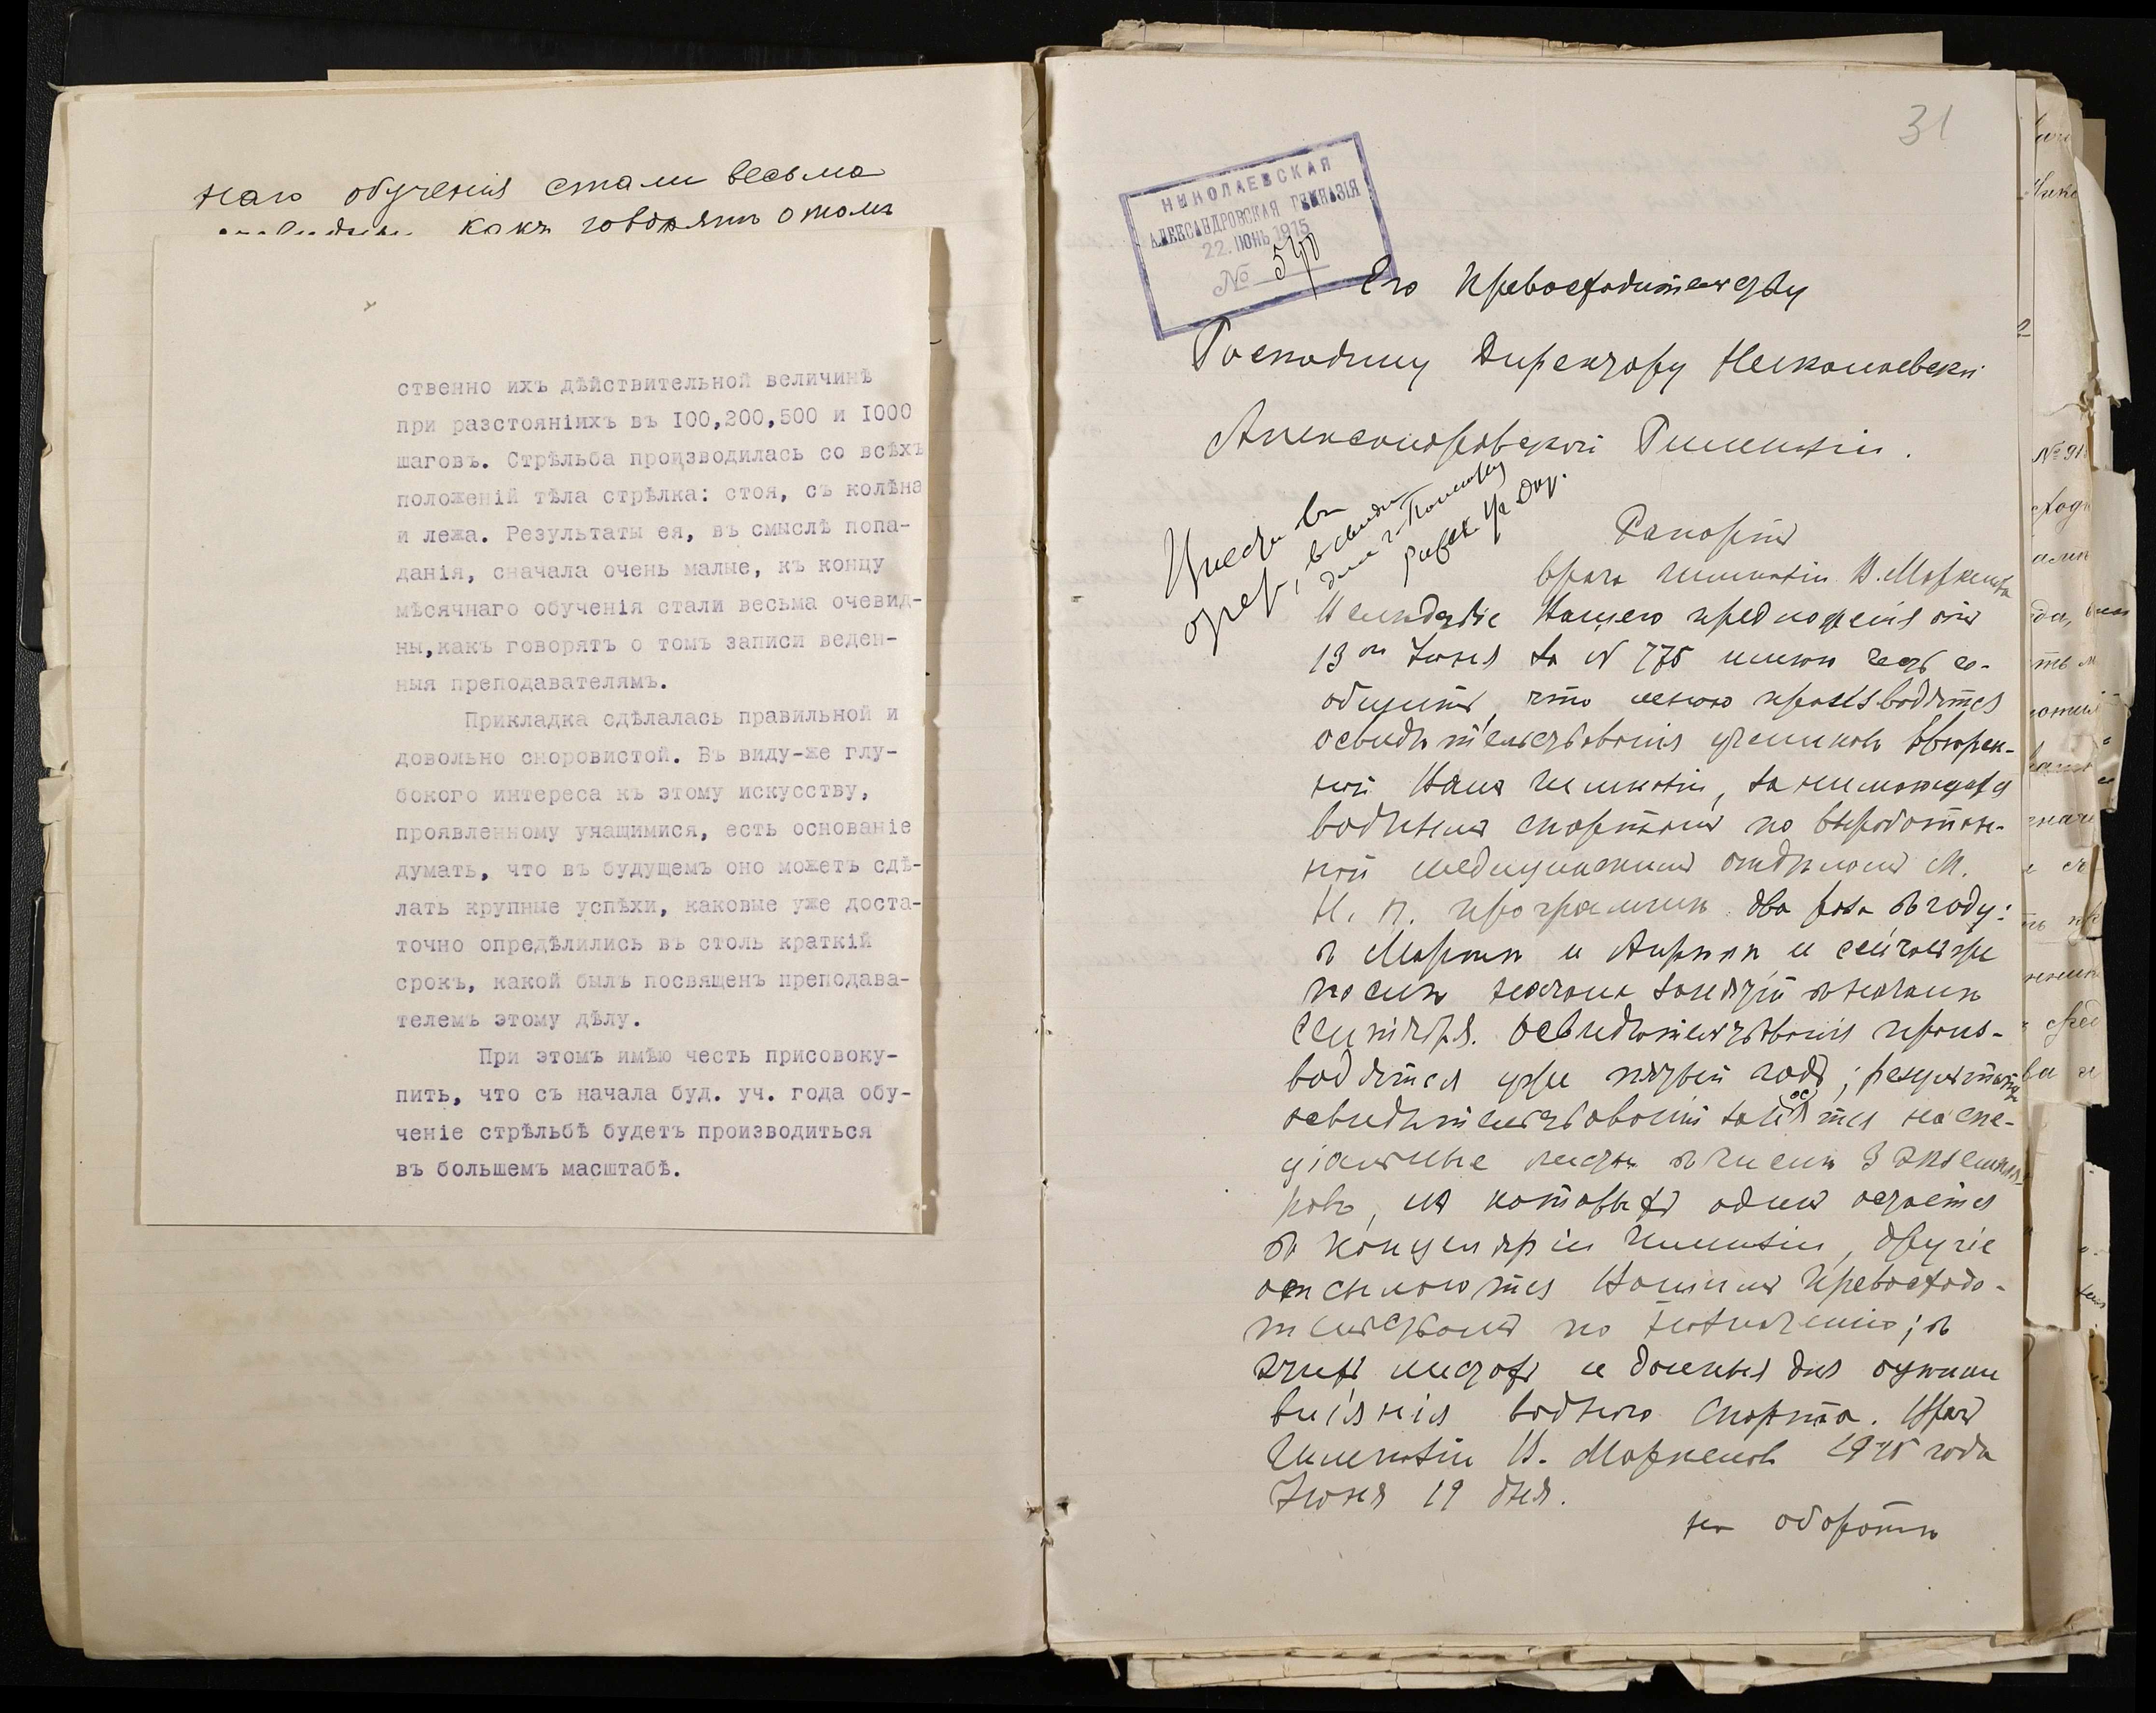 наго обученія стали весьма
какъ говорятъ о томъ
ственно ихъ дѣйствительной величинѣ
при разстояніихъ въ I00,200,500 и I000
шаговъ. Стрѣльба производилась со всѣхъ
положеній тѣла стрѣлка: стоя, съ колѣна
и лежа. Результаты ея, въ смыслѣ попа-
данія, сначала очень малые, къ концу
мѣсячнаго обученія стали весьма очевид-
ны,какъ говорятъ о томъ записи веден-
ныя преподавателямъ.
Прикладка сдѣлалась правильной и
довольно сноровистой. Въ виду-же глу-
бокого интереса къ этому искусству,
проявленному учащимися, есть основаніе
думать, что въ будущемъ оно можетъ сдѣ-
лать крупные успѣхи, каковые уже доста-
точно опредѣлились въ столь краткій
срокъ, какой былъ посвященъ преподава-
телемъ этому дѣлу.
При этомъ имѣю честь присовоку-
пить, что съ начала буд. уч. года обу-
ченіе стрѣльбѣ будетъ производиться
въ большемъ масштабѣ.
31
НИКОЛАЕВСКАЯ
АЛЕКСАНДРОВСКАЯ ГИМНАЗІЯ
22. ІЮНЬ 1915
№ 540
Его Превосходительству
Господину Директору Николаевской
Александровской Гимназіи.
Рапортъ
врача гимназіи В.
Вслѣдствіе Вашего предложенія отъ
13го Іюня за N 775 имѣю честь со-
общить, что мною производятся
освидѣтельствованія учениковъ ввѣрен-
ной Вамъ гимназіи, занимающихся
воднымъ спортомъ по выработан-
ной медицинскимъ отдѣломъ М.
Н. П. программѣ два раза въ году:
въ Мартѣ и Апрѣлѣ и сейчасъ же
послѣ начала занятій въ началѣ
Сентября. Освидѣтельствованія произ-
водятся уже пятый годъ; результаты
освидѣтельствованій заносятся на спе-
ціальные листы въ числѣ 3 экземпля-
ровъ, изъ которыхъ одинъ остается
въ канцеляріи гимназіи, другіе
отсылаются Вашимъ Превосходи-
тельствомъ по назначенію; въ
этихъ листахъ и данныя для оцѣнки
вліянія воднаго спорта. Врачъ
Гимназіи В. 1915 года
Іюня 19 дня.
на оборотѣ